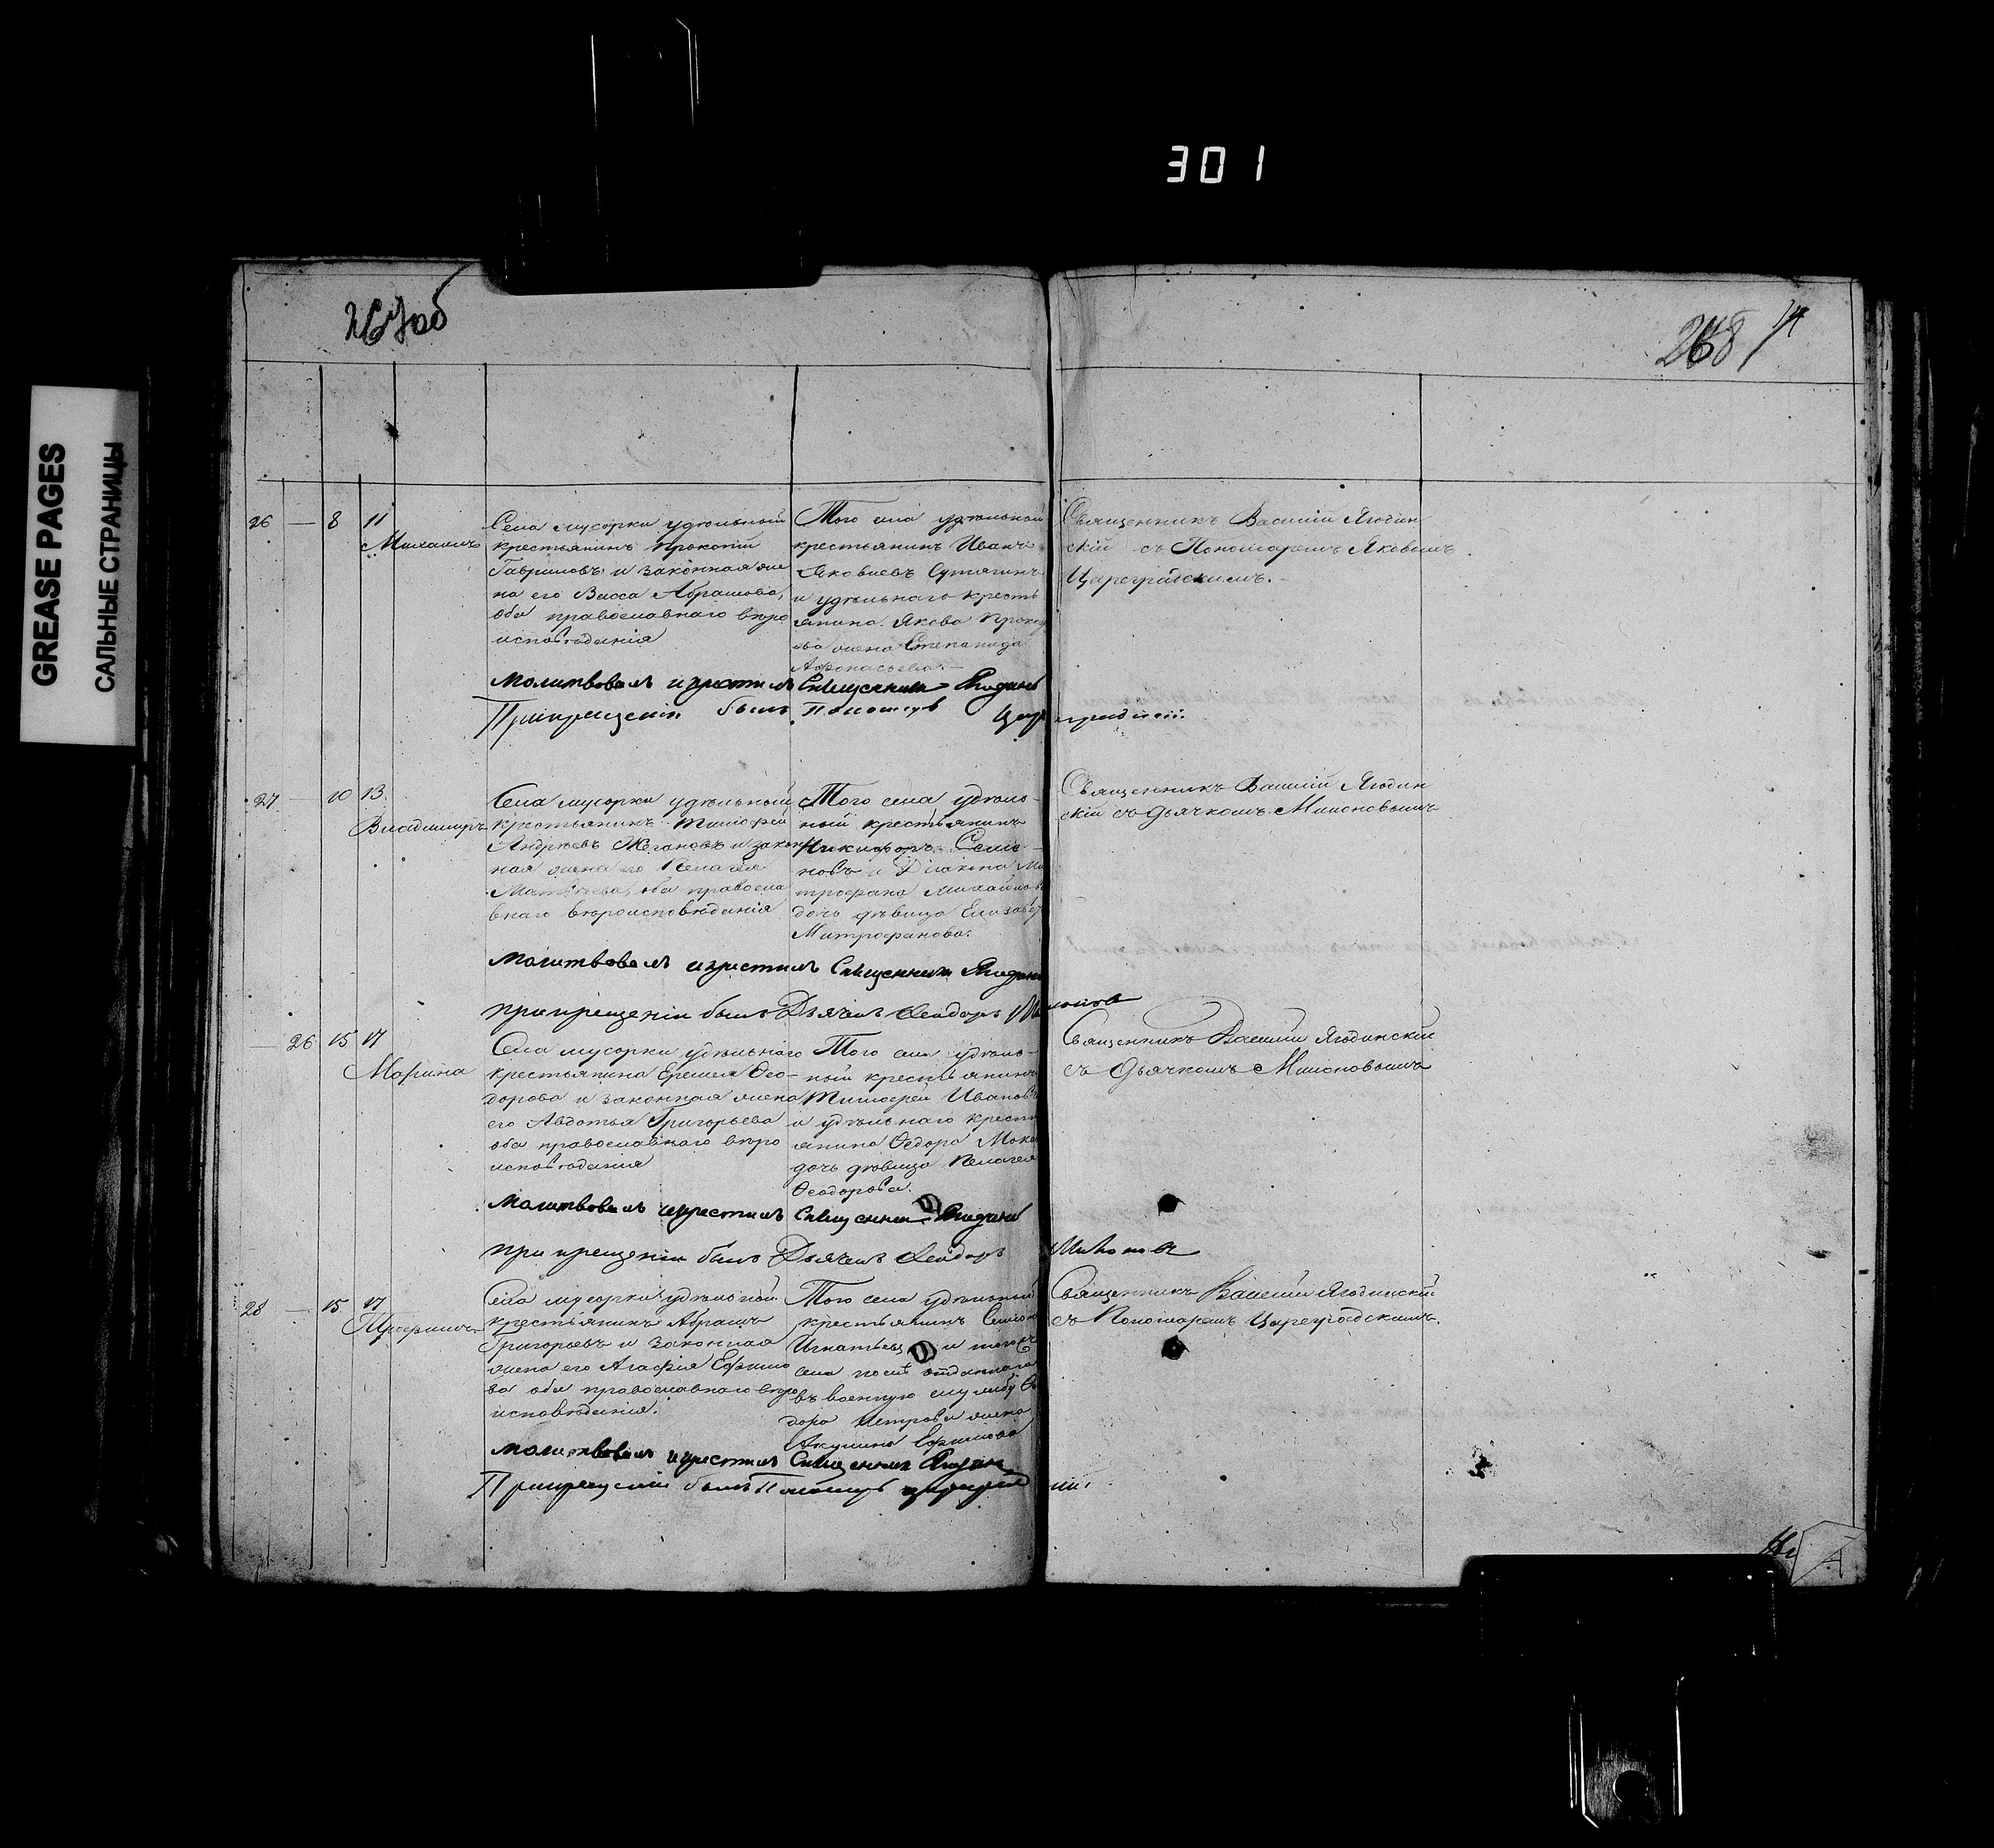 301
GREASE PAGES
САЛЬНЫЕ СТРАНИЦЫ
267об
268
26 — 8 11
Михаилъ
Села мусорки удѣльный
крестьянинъ Прокопій
Гавриловъ и законная же
на его Васса Абрамова,
оба православнаго вѣро
исповѣданія
Того села удѣльной
крестьянинъ Иванъ
Яковлевъ Сутягинъ
и удѣльнаго кресть
янина Якова
жена Степанида
Афонасьева.
Священникъ Василій Ягодин
скій съ Пономаремъ Яковымъ
Цареградскимъ.
Молитвовалъ и крестилъ Священникъ
При крещеніи былъ Пономарь Цареградскій
27 — 10 13
Владимиръ
Села мусорки удѣльный
крестьянинъ Тимофей
Андреевъ Жегановъ и закон
ная жена его Пелагея
Матвѣева, оба правосла
внаго вѣроисповѣданія
Того села удѣль-
ный крестьянинъ
Никифоръ Семе-
новъ и Діакона Ми
трофана Михайлова
дочь дѣвица Елизавет
Митрофанова.
Священникъ Василій Ягодин
скій съ дьячкомъ Милоновымъ
Молитвовалъ и крестилъ Священникъ
при крещеніи былъ Дьячекъ Феодоръ
— 26 15 17
Марина
Села мусорки удѣльнаго
крестьянина Ермея Ѳео-
дорова и законная жена
его Авдотья Григорьева
оба православнаго вѣро
исповѣданія
Того села удѣль-
ный крестьянинъ
Тимофей Ивановъ
и удѣльнаго кресть
янина Ѳедора
дочь дѣвица Пелагея
Ѳеодорова.
Священникъ Василій Ягодинскій
съ дьячкомъ Милоновымъ
Молитвовалъ и крестилъ Священникъ
при крещеніи былъ Дьячекъ Феодоръ Милоновъ
28 — 15 17
Трофимъ
Села мусорки удѣльной
крестьянинъ Абрамъ
Григорьевъ и законная
жена его Агафія Ефимо
ва оба православнаго вѣро
исповѣданія.
Того села удѣльный
крестьянинъ Семенъ
Игнатьевъ и того
села послѣ отданнаго
въ военную службу Ѳе
дора Петрова жена
Акулина Ефимова
Священникъ Василій Ягодинскій
съ Пономаремъ Цареградскимъ.
Молитвовалъ и крестилъ Священникъ
При крещеніи былъ Пономарь